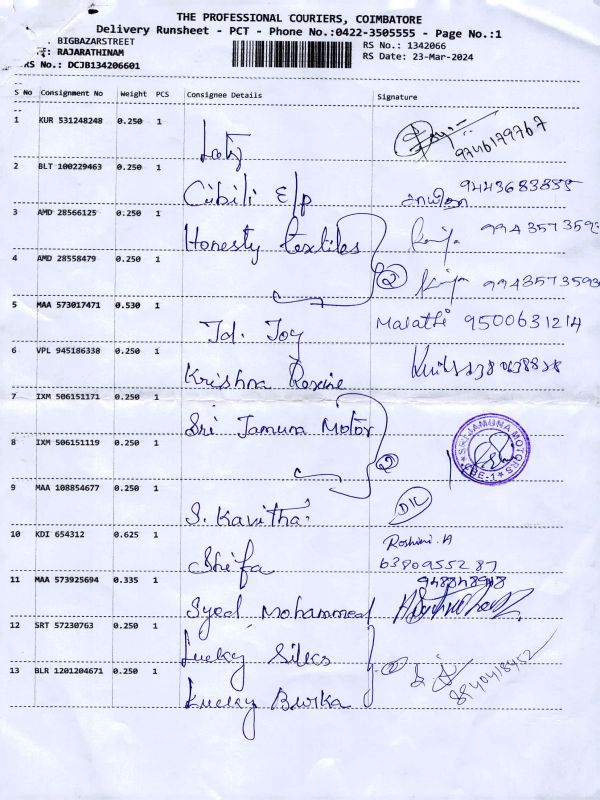 THE PROFESSIONAL COURIERS, COIMBATORE
Delivery Runsheet - PCT - Phone No.:0422-3505555 - Page No.:1
BIGBAZARSTREET
: RAJARATHINAM
RS No.: DCJB134206601
RS No.: 1342066
RS Date: 23-Mar-2024
S No Consignment No Weight PCS Consignee Details Signature
1 KUR 531248248 0.250 1 9746179767
2 BLT 100229463 0.250 1 Cibili E/p 9443683855
3 AMD 28566125 0.250 1 Honesty textiles 9943573593
4 AMD 28558479 0.250 1 2 9943573593
5 MAA 573017471 0.530 1 Jd. Joy Malathi 9500631214
6 VPL 945186330 0.250 1 Krishna
7 IXM 506151171 0.250 1 Sri Jamuna Motor
8 IXM 506151119 0.250 1 2 SRI JAMUNA MOTORS CBE-1
9 MAA 108854677 0.250 1 S. Kavitha
10 KDI 654312 0.625 1 Shifa Roshini. A
6380955287
11 MAA 573925694 0.335 1 Syed Mohammed
12 SRT 57230763 0.250 1 Lucky Silks
13 BLR 1201204671 0.250 1 Lucky Burka 8940418452